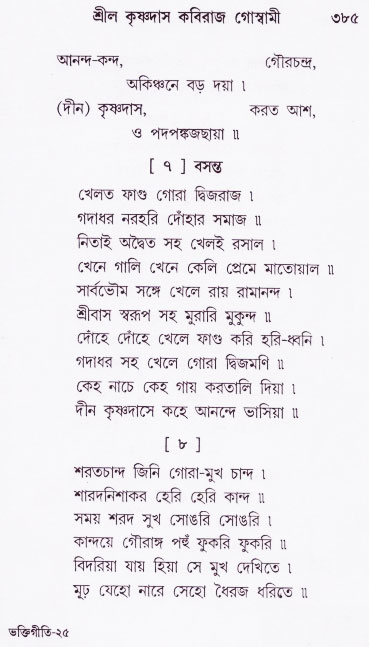 শ্রীল কৃষ্ণদাস কবিরাজ গোস্বামী ৩৮৫
আনন্দ-কন্দ, গৌরচন্দ্র,
অকিঞ্চনে বড় দয়া ।
(দীন) কৃষ্ণদাস, করত আশ,
ও পদপঙ্কজছায়া ॥
[ ৭ ] বসন্ত
খেলত ফাগু গোরা দ্বিজরাজ ।
গদাধর নরহরি দোঁহার সমাজ ॥
নিতাই অদ্বৈত সহ খেলই রসাল ।
খেনে গালি খেনে কেলি প্রেমে মাতোয়াল ॥
সার্বভৌম সঙ্গে খেলে রায় রামানন্দ ।
শ্রীবাস স্বরূপ সহ মুরারি মুকুন্দ ॥
দোঁহে দোঁহে খেলে ফাগু করি হরি-ধ্বনি ।
গদাধর সহ খেলে গোরা দ্বিজমণি ॥
কেহ নাচে কেহ গায় করতালি দিয়া ।
দীন কৃষ্ণদাসে কহে আনন্দে ভাসিয়া ॥
[ ৮ ]
শরতচান্দ জিনি গোরা-মুখ চান্দ ।
শারদনিশাকর হেরি হেরি কান্দ ॥
সময় শরদ সুখ সোঙরি সোঙরি ।
কান্দয়ে গৌরাঙ্গ পহুঁ ফুকরি ফুকরি ॥
বিদরিয়া যায় হিয়া সে মুখ দেখিতে ।
মূঢ় যেহো নারে সেহো ধৈরজ ধরিতে ॥
ভক্তিগীতি-২৫